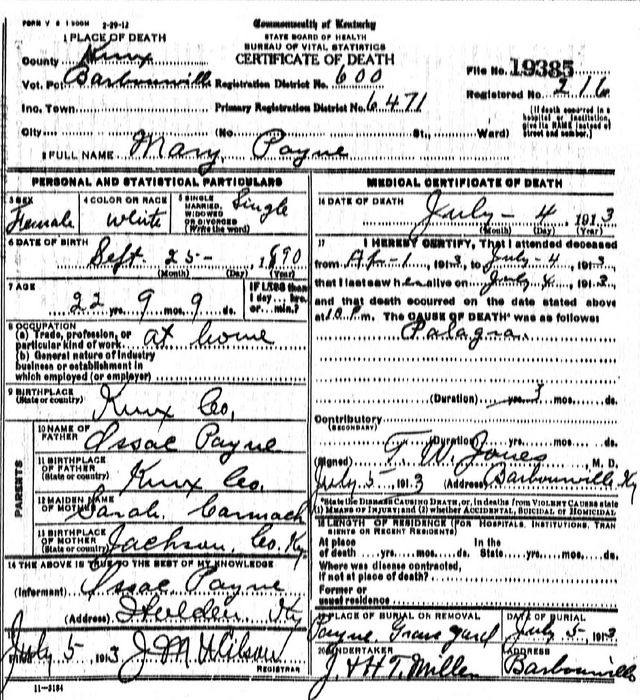 FORM V S 1 500M 2-29-12
Commonwealth of Kentucky
STATE BOARD OF HEALTH
BUREAU OF VITAL STATISTICS
CERTIFICATE OF DEATH
1 PLACE OF DEATH
County Knux
Vot. Pct. Barbourville Registration District No. 600
File No. 19385
Registered No. 216
Inc. Town Primary Registration District No. 6471
[If death occurred in a hospital or institution, give its NAME instead of street and number.]
City (No. St., Ward)
2 FULL NAME Mary Payne
PERSONAL AND STATISTICAL PARTICULARS
3 SEX Female
4 COLOR OR RACE White
5 SINGLE, MARRIED, WIDOWED OR DIVORCED (Write the word) Single
6 DATE OF BIRTH Sept. 25- 1890
(Month) (Day) (Year)
7 AGE 22 yrs. 9 mos. 9 ds.
If LESS than 1 day... hrs. or... min.?
8 OCCUPATION
(a) Trade, profession, or particular kind of work at home
(b) General nature of industry
business or establishment in
which employed (or employer)
9 BIRTHPLACE
(State or country) Knux Co,
PARENTS
10 NAME OF FATHER Issac Payne
11 BIRTHPLACE OF FATHER (State or country) Knux Co.
12 MAIDEN NAME OF MOTHER Sarah. Carmach
13 BIRTHPLACE OF MOTHER (State or country) Jackson, Co. Ky.
14 THE ABOVE IS TRUE TO THE BEST OF MY KNOWLEDGE
(Informant) Issac Payne
(Address) Ky
15
Filed July 5 1913 J M Wilson
REGISTRAR
11-3184
MEDICAL CERTIFICATE OF DEATH
16 DATE OF DEATH July - 4, 1913
(Month) (Day) (Year)
17 I HEREBY CERTIFY, That I attended deceased
from Ap-1, 1913, to July-4, 1913,
that I last saw her alive on July 4, 1913,
and that death occurred on the date stated above
at 10 P m. The CAUSE OF DEATH* was as follows:
Palagra.
(Duration) yrs. 3 mos. ds.
Contributory
(SECONDARY)
(Duration) yrs. mos. ds.
(Signed) T. W. Jones, M. D.
July 5-, 1913 (Address) Barbourville, Ky
*State the DISEASE CAUSING DEATH, or, in deaths from VIOLENT CAUSES
(1) MEANS OF INJURY; and (2) whether ACCIDENTAL, SUICIDAL or HOMICIDAL
18 LENGTH OF RESIDENCE (FOR HOSPITALS, INSTITUTIONS, TRAN
SIENTS OR RECENT RESIDENTS)
At place of death yrs. mos. ds. In the State yrs. mos. ds.
Where was disease contracted,
if not at place of death?
Former or
usual residence
19 PLACE OF BURIAL OR REMOVAL Payne Grave yard
DATE OF BURIAL July 5-, 1913
20 UNDERTAKER J. & H T. Miller
ADDRESS Barbourville